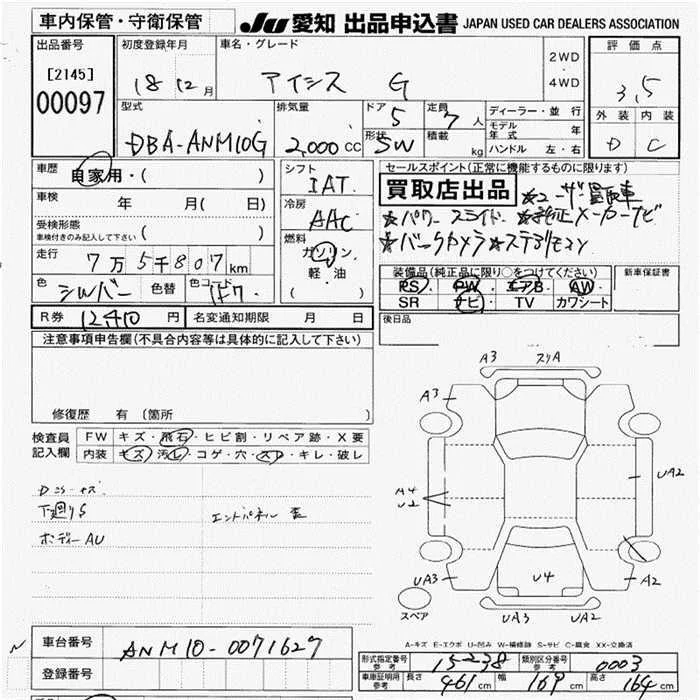 車内保管・守衛保管
JU 愛知 出品申込書 JAPAN USED CAR DEALERS ASSOCIATION
出品番号
[2145]
00097
初度登録年月
18 12 月
車名・グレード
アイシス G
2WD
・
4WD
評価点
3,5
外装 内装
D C
型式
DBA-ANM10G
排気量
2,000 cc
ドア
5
定員
7 人
形状
SW
積載
kg
ディーラー・並行
モデル年式 年
ハンドル 左・右
車歴
自家用・( )
車検
年 月( 日)
受検形態
車検付きのみ記入して下さい ( )
走行
7万5千807km
色
シルバー
色替
色コード
1F7
シフト
IAT
冷房
AAC
燃料
ガソリン
軽・油
( )
セールスポイント(正常に機能するものに限ります)
買取店出品 ☆ユーザー買取車
☆パワースライド ☆純正メーカーナビ
☆バックカメラ ☆ステアリモコン
装備品(純正品に限り○をつけてください)
PS PW エアB AW
SR ナビ TV カワシート
新車保証書
後日品
R券 12,410 円
名変通知期限 月 日
注意事項申告欄(不具合内容等は具体的に記入して下さい)
修復歴 有 (箇所 )
検査員
記入欄
FW キズ・飛石・ヒビ割・リペア跡・X要
内装 キズ・汚レ・コゲ・穴・スレ・キレ・破レ
下廻りS
ボディーAU
エンドパネル
A3
スリA
A3
A4
U2
UA2
UA3
U4
A2
UA3
UA2
スペア
A-キズ E-エクボ U-凹み W-補修跡 S-サビ C-腐食 XX-交換済
車台番号
ANM10-0071627
登録番号
形式指定番号
参考
15238
類別区分番号
参考
0003
車庫証明用
参考
長さ 461 cm 幅 169 cm 高さ 164 cm